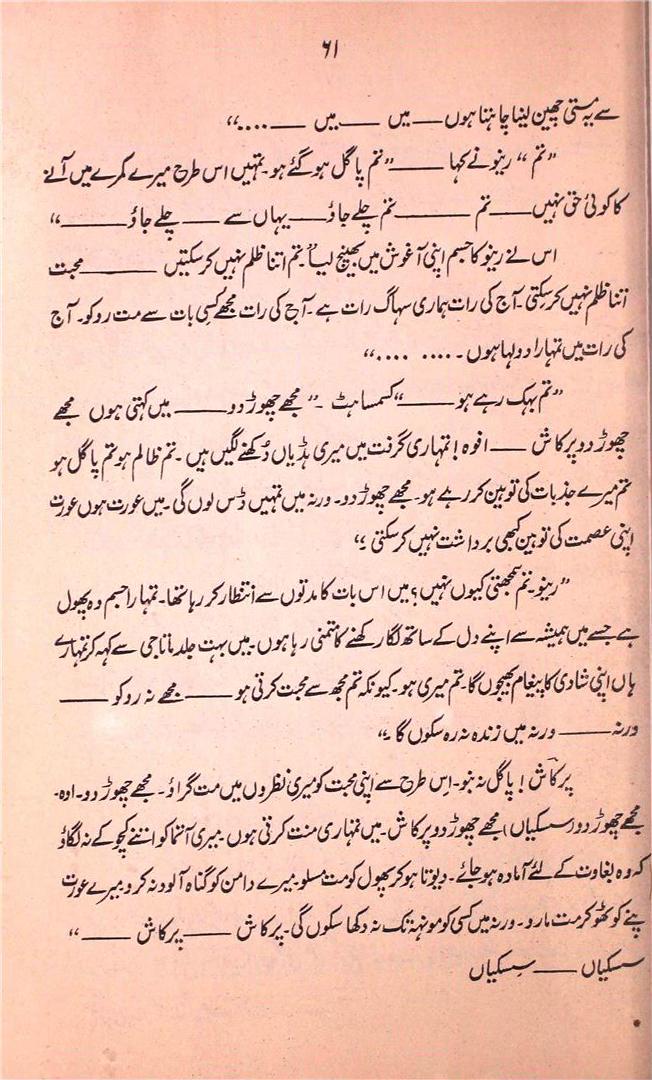 ۶۱
سے یہ مستی چھین لینا چاہتا ہوں ــــ میں ــــ میں ــــ ....“
”تم“ رینو نے کہا ــــ ”تم پاگل ہو گئے ہو۔ تمہیں اس طرح میرے کمرے میں آنے
کا کوئی حق نہیں ــــ تم ــــ تم چلے جاؤ ــــ یہاں سے ــــ چلے جاؤ ــــ“
اس نے رینو کا جسم اپنی آغوش میں بھینچ لیا ”تم اتنا ظلم نہیں کر سکتیں ــــ محبت
اتنا ظلم نہیں کر سکتی۔ آج کی رات ہماری سہاگ رات ہے۔ آج کی رات مجھے کسی بات سے مت روکو۔ آج
کی رات میں تمہارا دولہا ہوں۔ .... ....“
”تم بہک رہے ہو ــــ“ کسمساہٹ ۔ ”مجھے چھوڑ دو ــــ میں کہتی ہوں مجھے
چھوڑ دو پرکاش ــــ افوہ! تمہاری گرفت میں میری ہڈیاں دُکھنے لگیں ہیں۔ تم ظالم ہو تم پاگل ہو
تم میرے جذبات کی توہین کر رہے ہو۔ مجھے چھوڑ دو۔ ورنہ میں تمہیں ڈس لوں گی۔ میں عورت ہوں عورت
اپنی عصمت کی توہین کبھی برداشت نہیں کر سکتی۔“
”رینو۔ تم سمجھتی کیوں نہیں؟ میں اس بات کا مدتوں سے انتظار کر رہا تھا۔ تمہارا جسم وہ پھول
ہے جسے میں ہمیشہ سے اپنے دل کے ساتھ لگا رکھنے کا متمنی رہا ہوں۔ میں بہت جلد ماتا جی سے کہہ کر تمہارے
ہاں اپنی شادی کا پیغام بھیجوں گا۔ تم میری ہو۔ کیونکہ تم مجھ سے محبت کرتی ہو ــــ مجھے نہ روکو ــــ
ورنہ ــــ ورنہ میں زندہ نہ رہ سکوں گا۔“
پرکاش! پاگل نہ بنو۔ اِس طرح سے اپنی محبت کو میری نظروں میں مت گراؤ۔ مجھے چھوڑ دو۔ اوہ۔
مجھے چھوڑ دو (سسکیاں) مجھے چھوڑ دو پرکاش۔ میں تمہاری منت کرتی ہوں۔ میری آتما کو اتنے کچوکے نہ لگاؤ
کہ وہ بغاوت کے لئے آمادہ ہو جائے۔ دیوتا ہو کر پھول کو مت مسلو۔ میرے دامن کو گناہ آلود نہ کرو۔ میرے عورت
پنے کو ٹھوکر مت مارو۔ ورنہ میں کسی کو مونہہ تک نہ دکھا سکوں گی۔ پرکاش ــــ پرکاش ــــ“
سسکیاں ــــ سِسکیاں